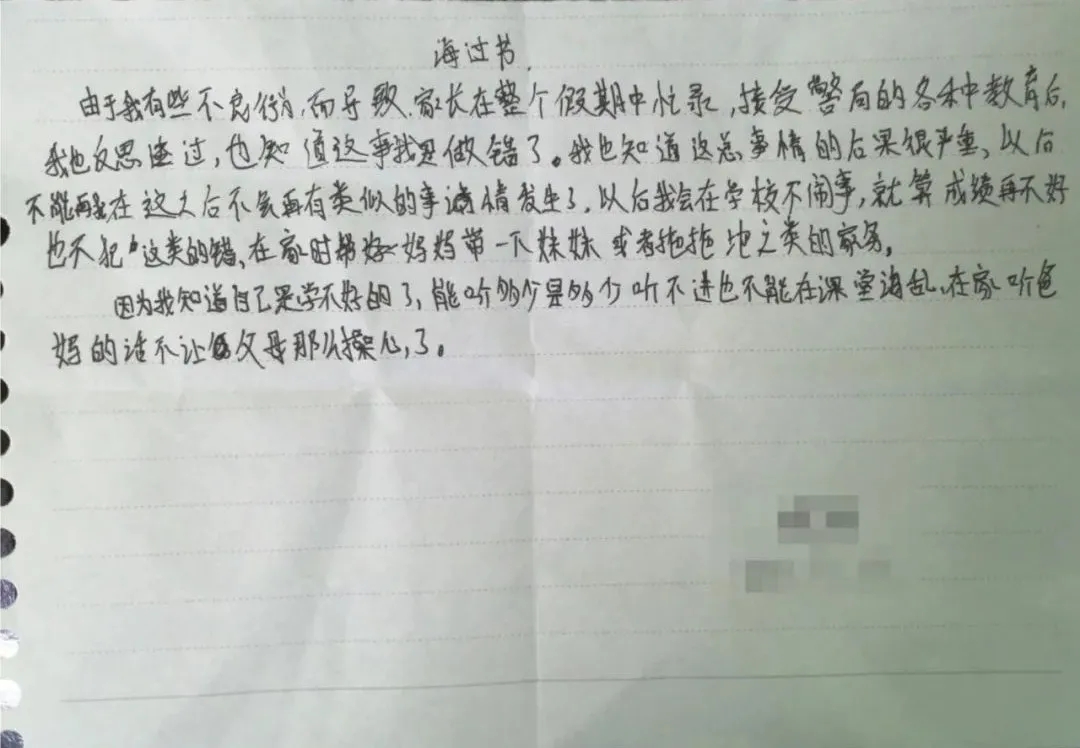 海过书
由于我有些不良行为,而导致家长在整个假期中忙录,接受警局的各种教育后,
我也反思过,也知道这事我是做错了。我也知道这总事情的后果很严重、以后
不能再在这之后不会再有类似的事情发生了,以后我会在学校不闹事,就算成绩再不好
也不犯这类的错,在家时帮妈妈带一下妹妹或者拖拖地之类的家务,
因为我知道自己是学不好的了,能听多少是多少听不进也不能在课堂捣乱,在家听爸
妈的话不让父母那么操心了。